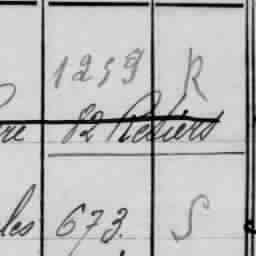 1259 R
re 82 Résiers
les 673. S